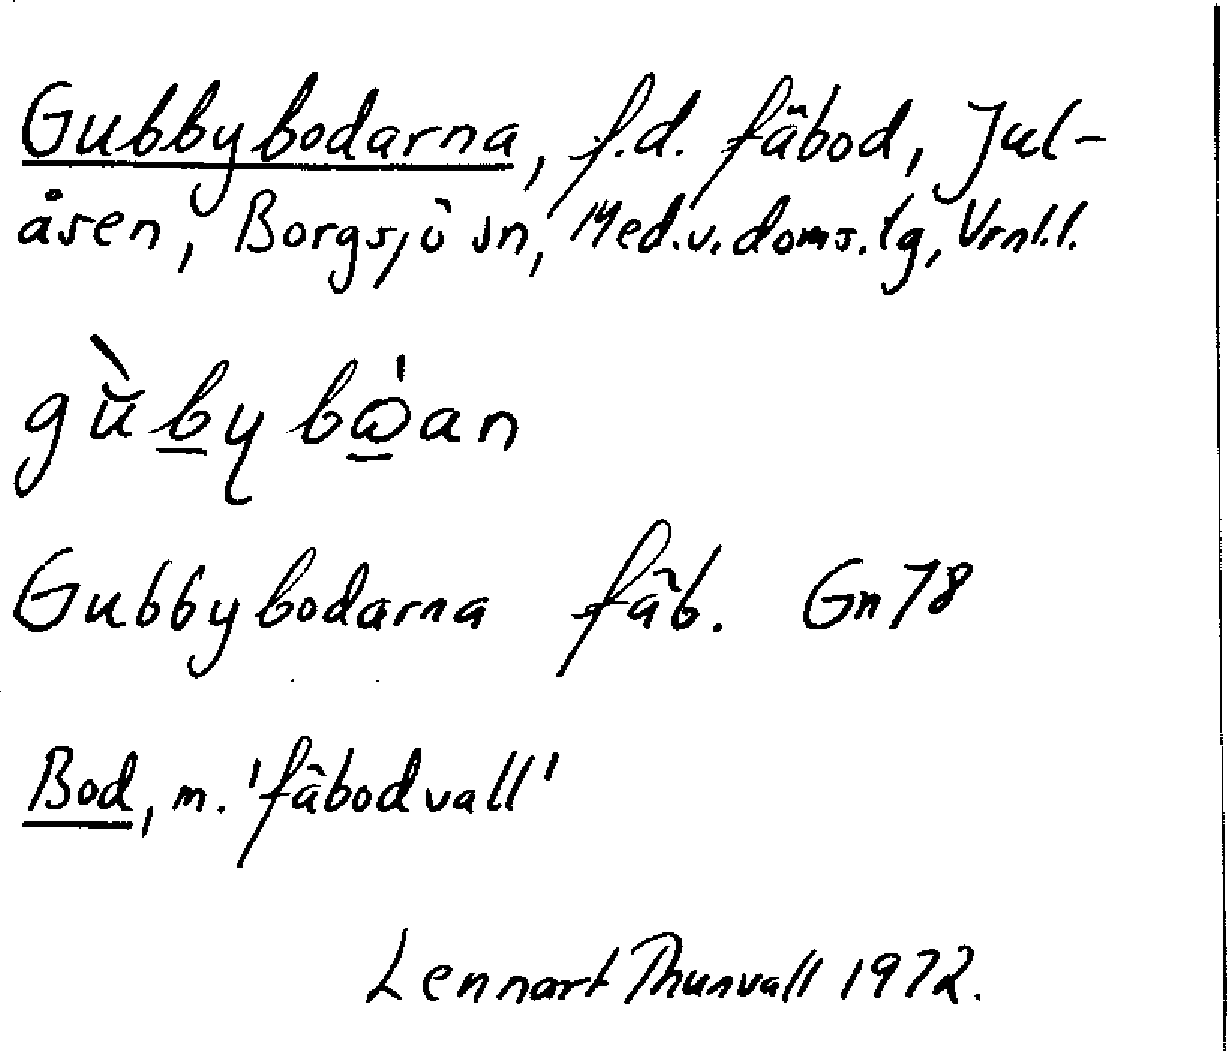 Gubbybodarna, f.d. fäbod, Jul-
åsen, Borgsjö sn, Med.v.doms.tg, Vrnl.l.
gùby bån
Gubbybodarna fäb. Gn78
Bod, m. 'fäbodvall'
Lennart Thunvall 1972.